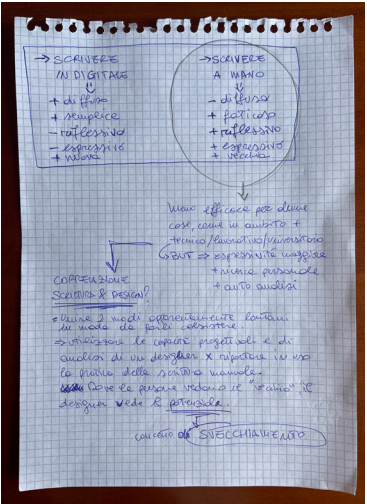 → SCRIVERE
IN DIGITALE
⇓
+ diffuso
+ semplice
- riflessivo
- espressivo
+ nuova
→ SCRIVERE
A MANO
⇓
- diffuso
+ faticoso
+ riflessivo
+ espressivo
+ vecchia
meno efficace per alcune
cose, come in ambito +
tecnico/lavorativo/universitario
BUT ⇒ espressività maggiore
+ ricerca personale
+ auto analisi
CORRELAZIONE
SCRITTURA & DESIGN?
= Unire 2 modi apparentemente lontani
in modo da farli coesistere
⇒ utilizzare le capacità progettuali e di
analisi di un designer x riportare in uso
la pratica della scrittura manuale.
Dove le persone vedono il "vecchio", il
designer vede le potenziale.
concetto di SVECCHIAMENTO